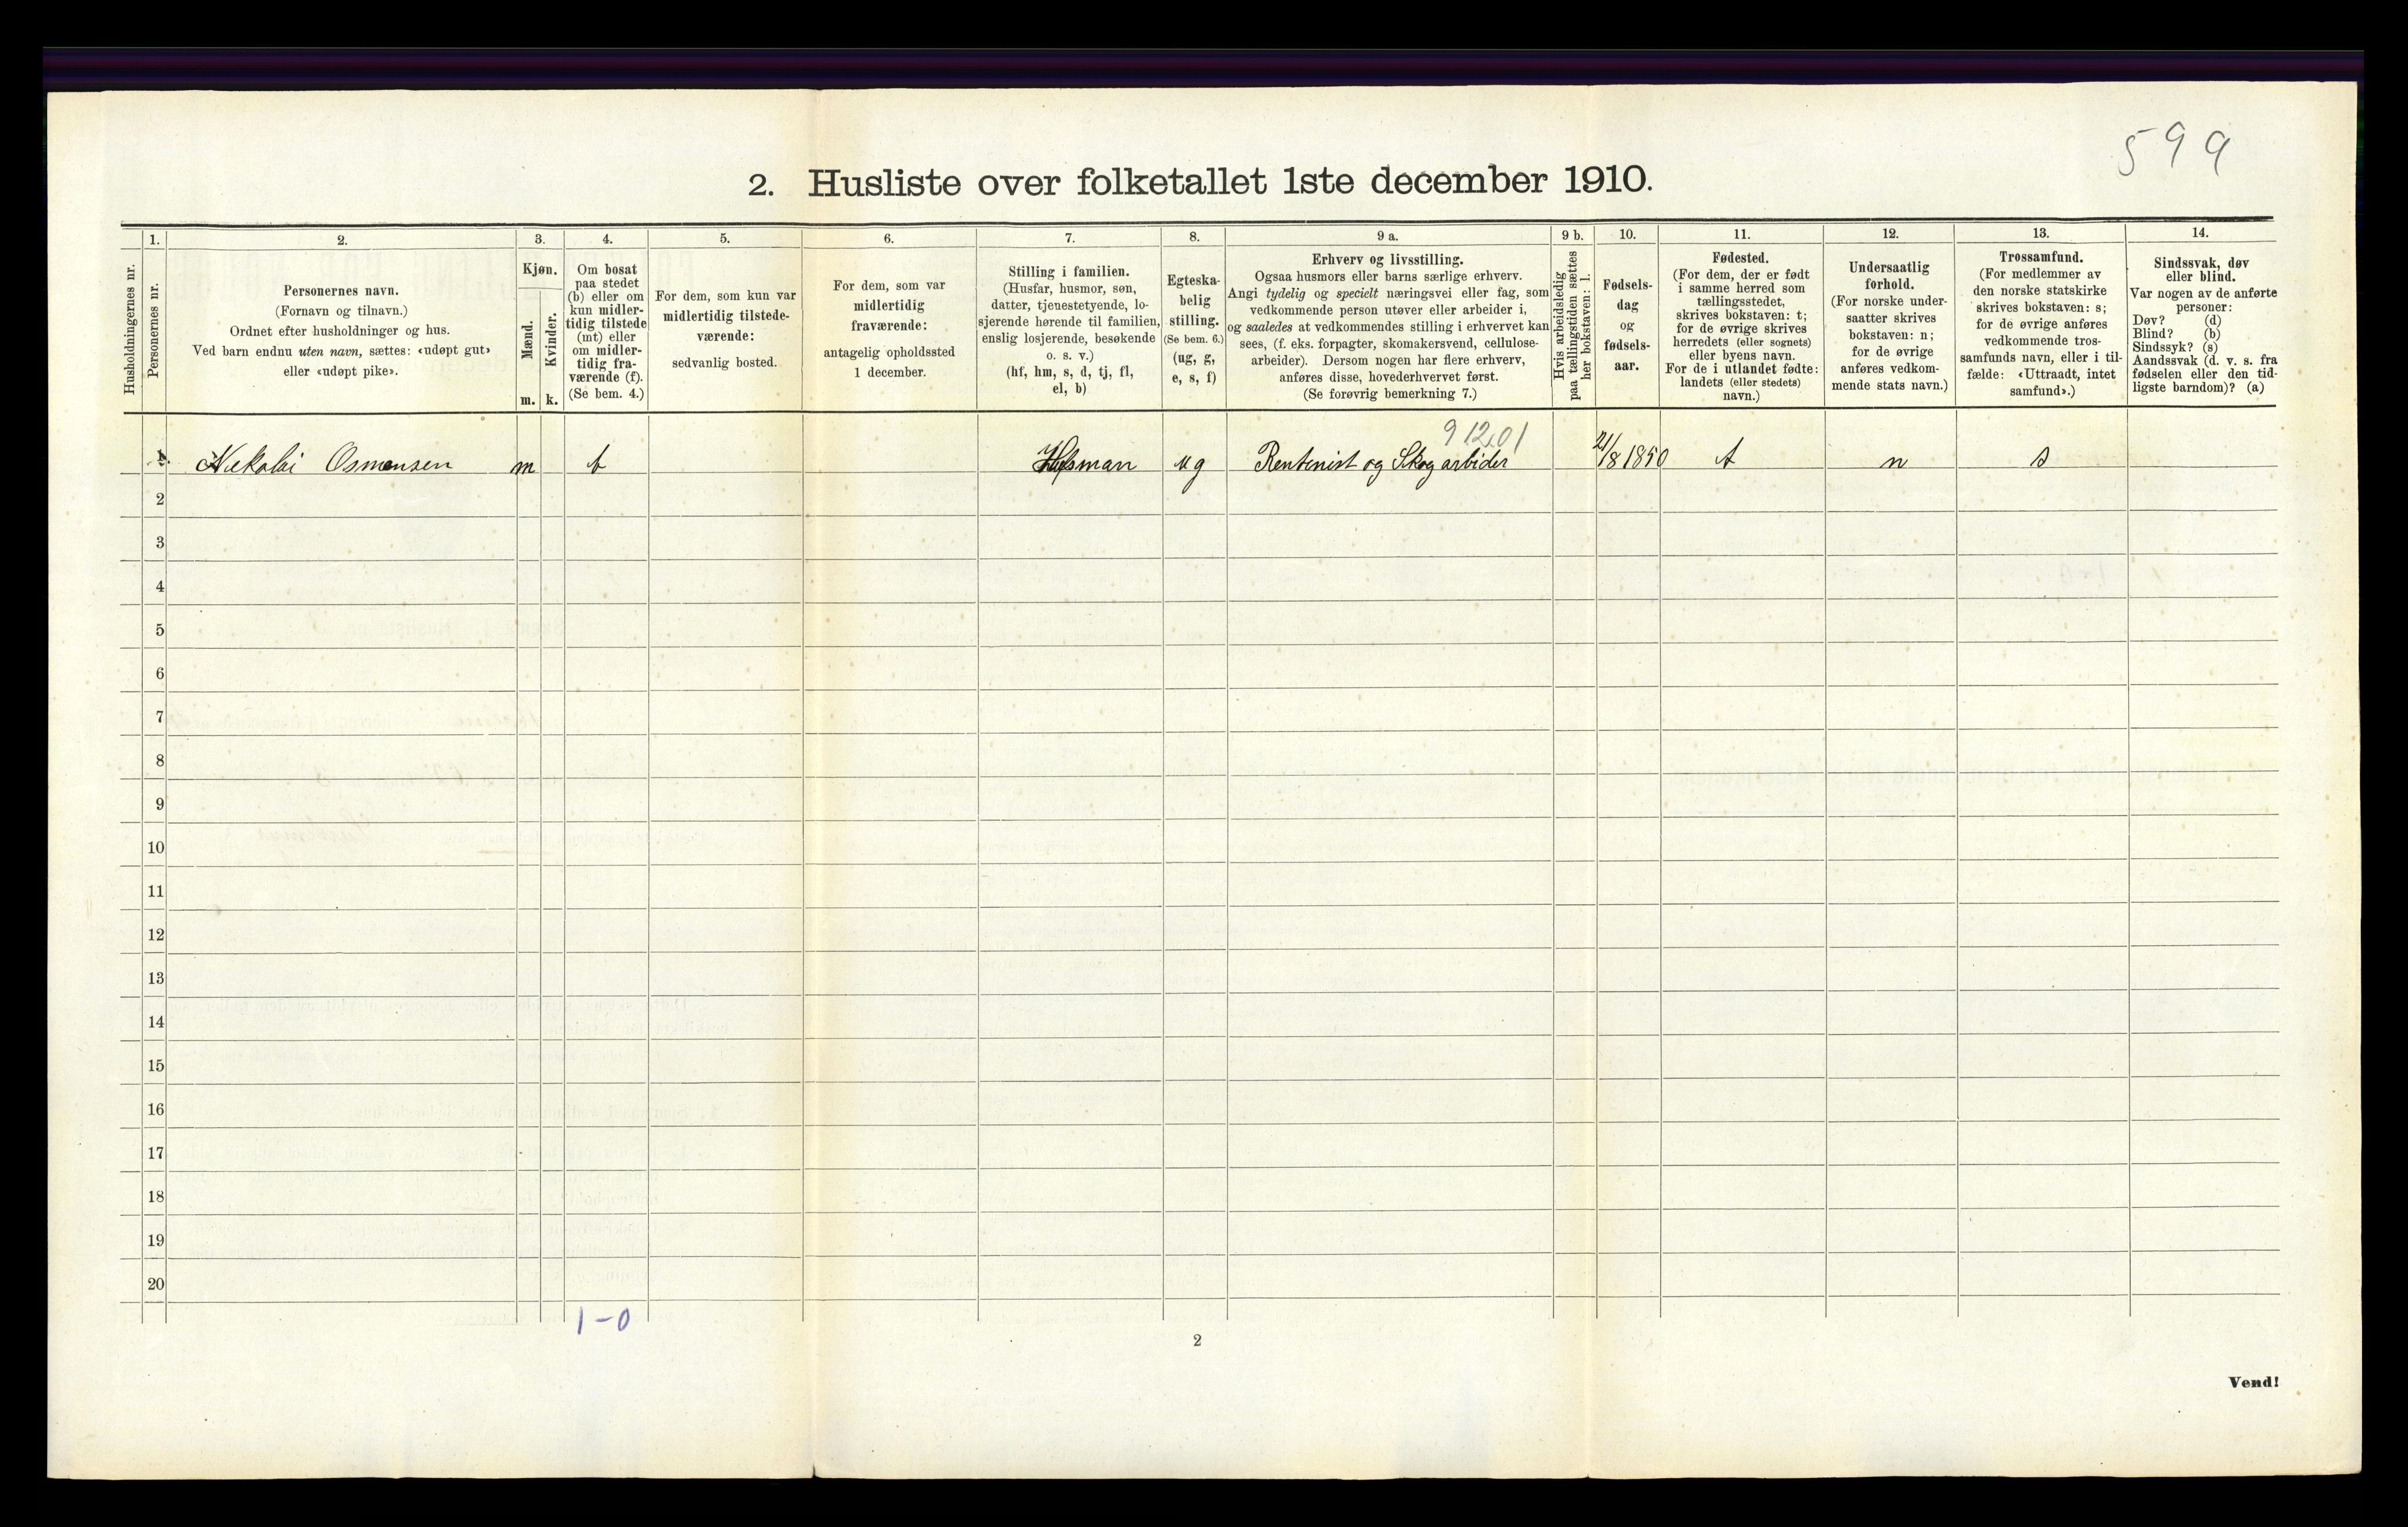 599
2. Husliste over folketallet 1ste december 1910.
Husholdningernes nr.
1.
Personernes nr.
2.
Personernes navn.
(Fornavn og tilnavn.)
Ordnet efter husholdninger og hus.
Ved barn endnu uten navn, sættes: «udøpt gut»
eller «udøpt pike».
3.
Kjøn.
Mænd.
Kvinder.
m. k.
4.
Om bosat
paa stedet
(b) eller om
kun midler-
tidig tilstede
(mt) eller
om midler-
tidig fra-
værende (f).
(Se bem. 4.)
5.
For dem, som kun var
midlertidig tilstede-
værende:
sedvanlig bosted.
6.
For dem, som var
midlertidig
fraværende:
antagelig opholdssted
1 december.
7.
Stilling i familien.
(Husfar, husmor, søn,
datter, tjenestetyende, lo-
sjerende hørende til familien,
enslig losjerende, besøkende
o. s. v.)
(hf, hm, s, d, tj, fl,
el, b)
8.
Egteska-
belig
stilling.
(Se bem. 6.)
(ug, g,
e, s, f)
9 a.
Erhverv og livsstilling.
Ogsaa husmors eller barns særlige erhverv.
Angi tydelig og specielt næringsvei eller fag, som
vedkommende person utøver eller arbeider i,
og saaledes at vedkommendes stilling i erhvervet kan
sees, (f. eks. forpagter, skomakersvend, cellulose-
arbeider). Dersom nogen har flere erhverv,
anføres disse, hovederhvervet først.
(Se forøvrig bemerkning 7.)
9 b.
Hvis arbeidsledig
paa tællingstiden sættes
her bokstaven: l.
10.
Fødsels-
dag
og
fødsels-
aar.
11.
Fødested.
(For dem, der er født
i samme herred som
tællingsstedet,
skrives bokstaven: t;
for de øvrige skrives
herredets (eller sognets)
eller byens navn.
For de i utlandet fødte:
landets (eller stedets)
navn.)
12.
Undersaatlig
forhold.
(For norske under-
saatter skrives
bokstaven: n;
for de øvrige
anføres vedkom-
mende stats navn.)
13.
Trossamfund.
(For medlemmer av
den norske statskirke
skrives bokstaven: s;
for de øvrige anføres
vedkommende tros-
samfunds navn, eller i til-
fælde: «Uttraadt, intet
samfund».)
14.
Sindssvak, døv
eller blind.
Var nogen av de anførte
personer:
Døv? (d)
Blind? (b)
Sindssyk? (s)
Aandssvak (d. v. s. fra
fødselen eller den tid-
ligste barndom)? (a)
91201
1. Nikolai Osmensen m b Husman ug Rentenist og Skogarbider 21/8 1850 t n s
2
3
4
5
6
7
8
9
10
11
12
13
14
15
16
17
18
19
20
1-0
2
Vend!